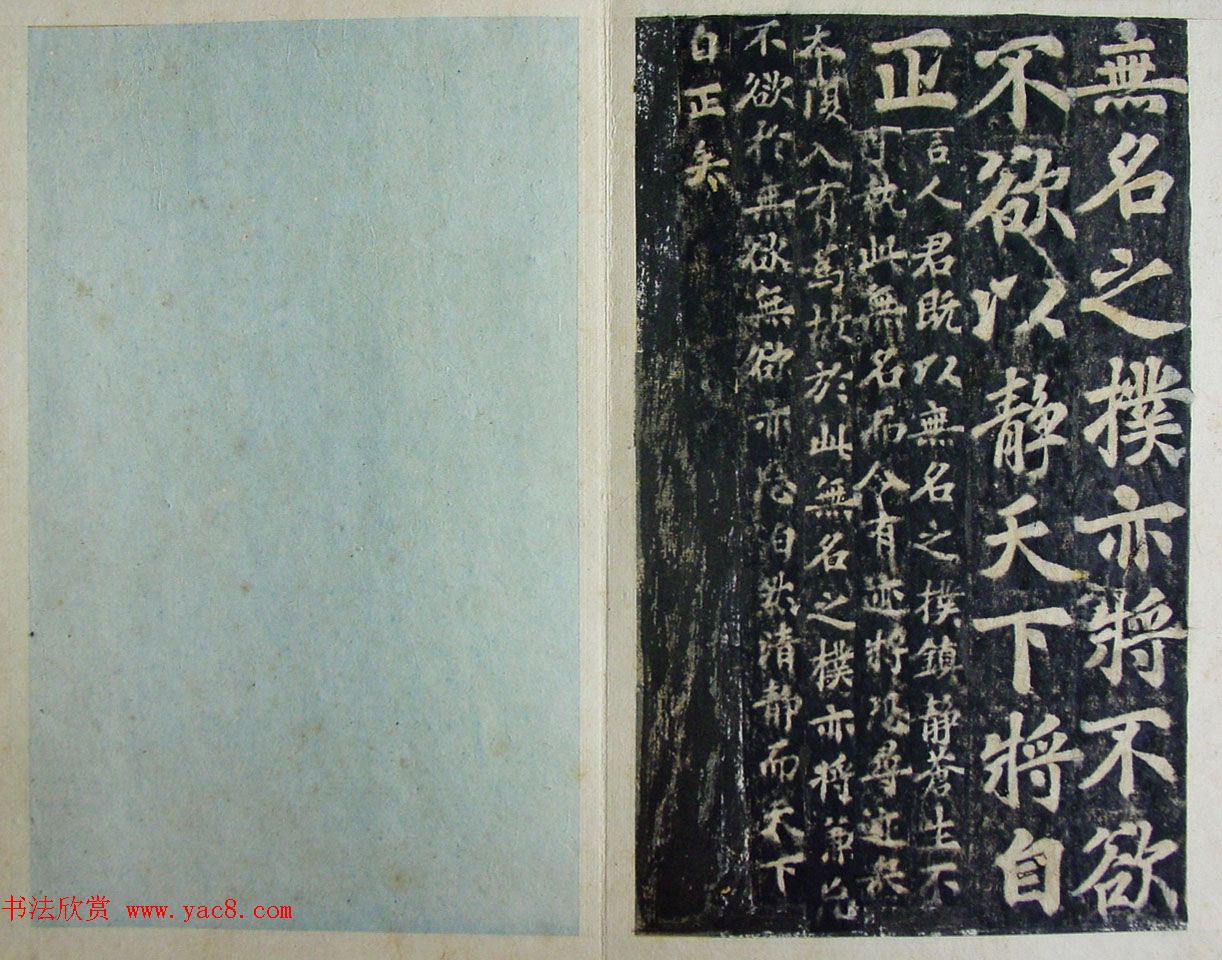 無名之撲亦將不欲
不欲以静天下將自
正
言人君既以無名之撲鎮静蒼生不
可執此無名而令有迹將恐尋迹喪
本復入有為故於此無名之樸亦將兼忘
不欲於無欲無欲亦忘泊然清静而天下
自正矣
书法欣赏 www.yac8.com